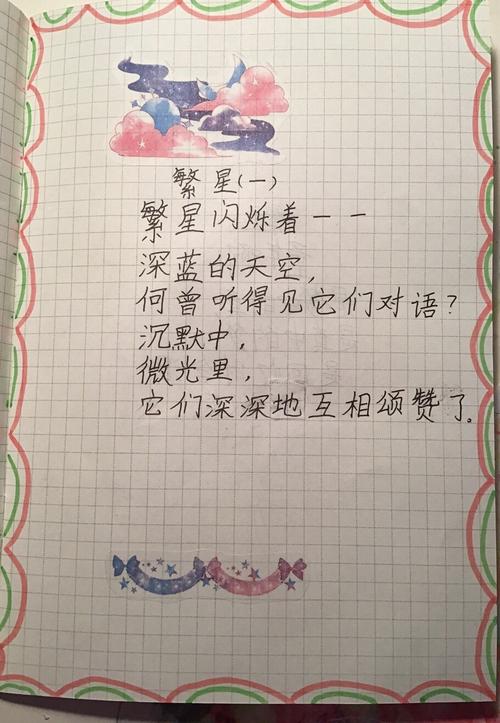 繁星(一)
繁星闪烁着——
深蓝的天空，
何曾听得见它们对语？
沉默中，
微光里，
它们深深地互相颂赞了。